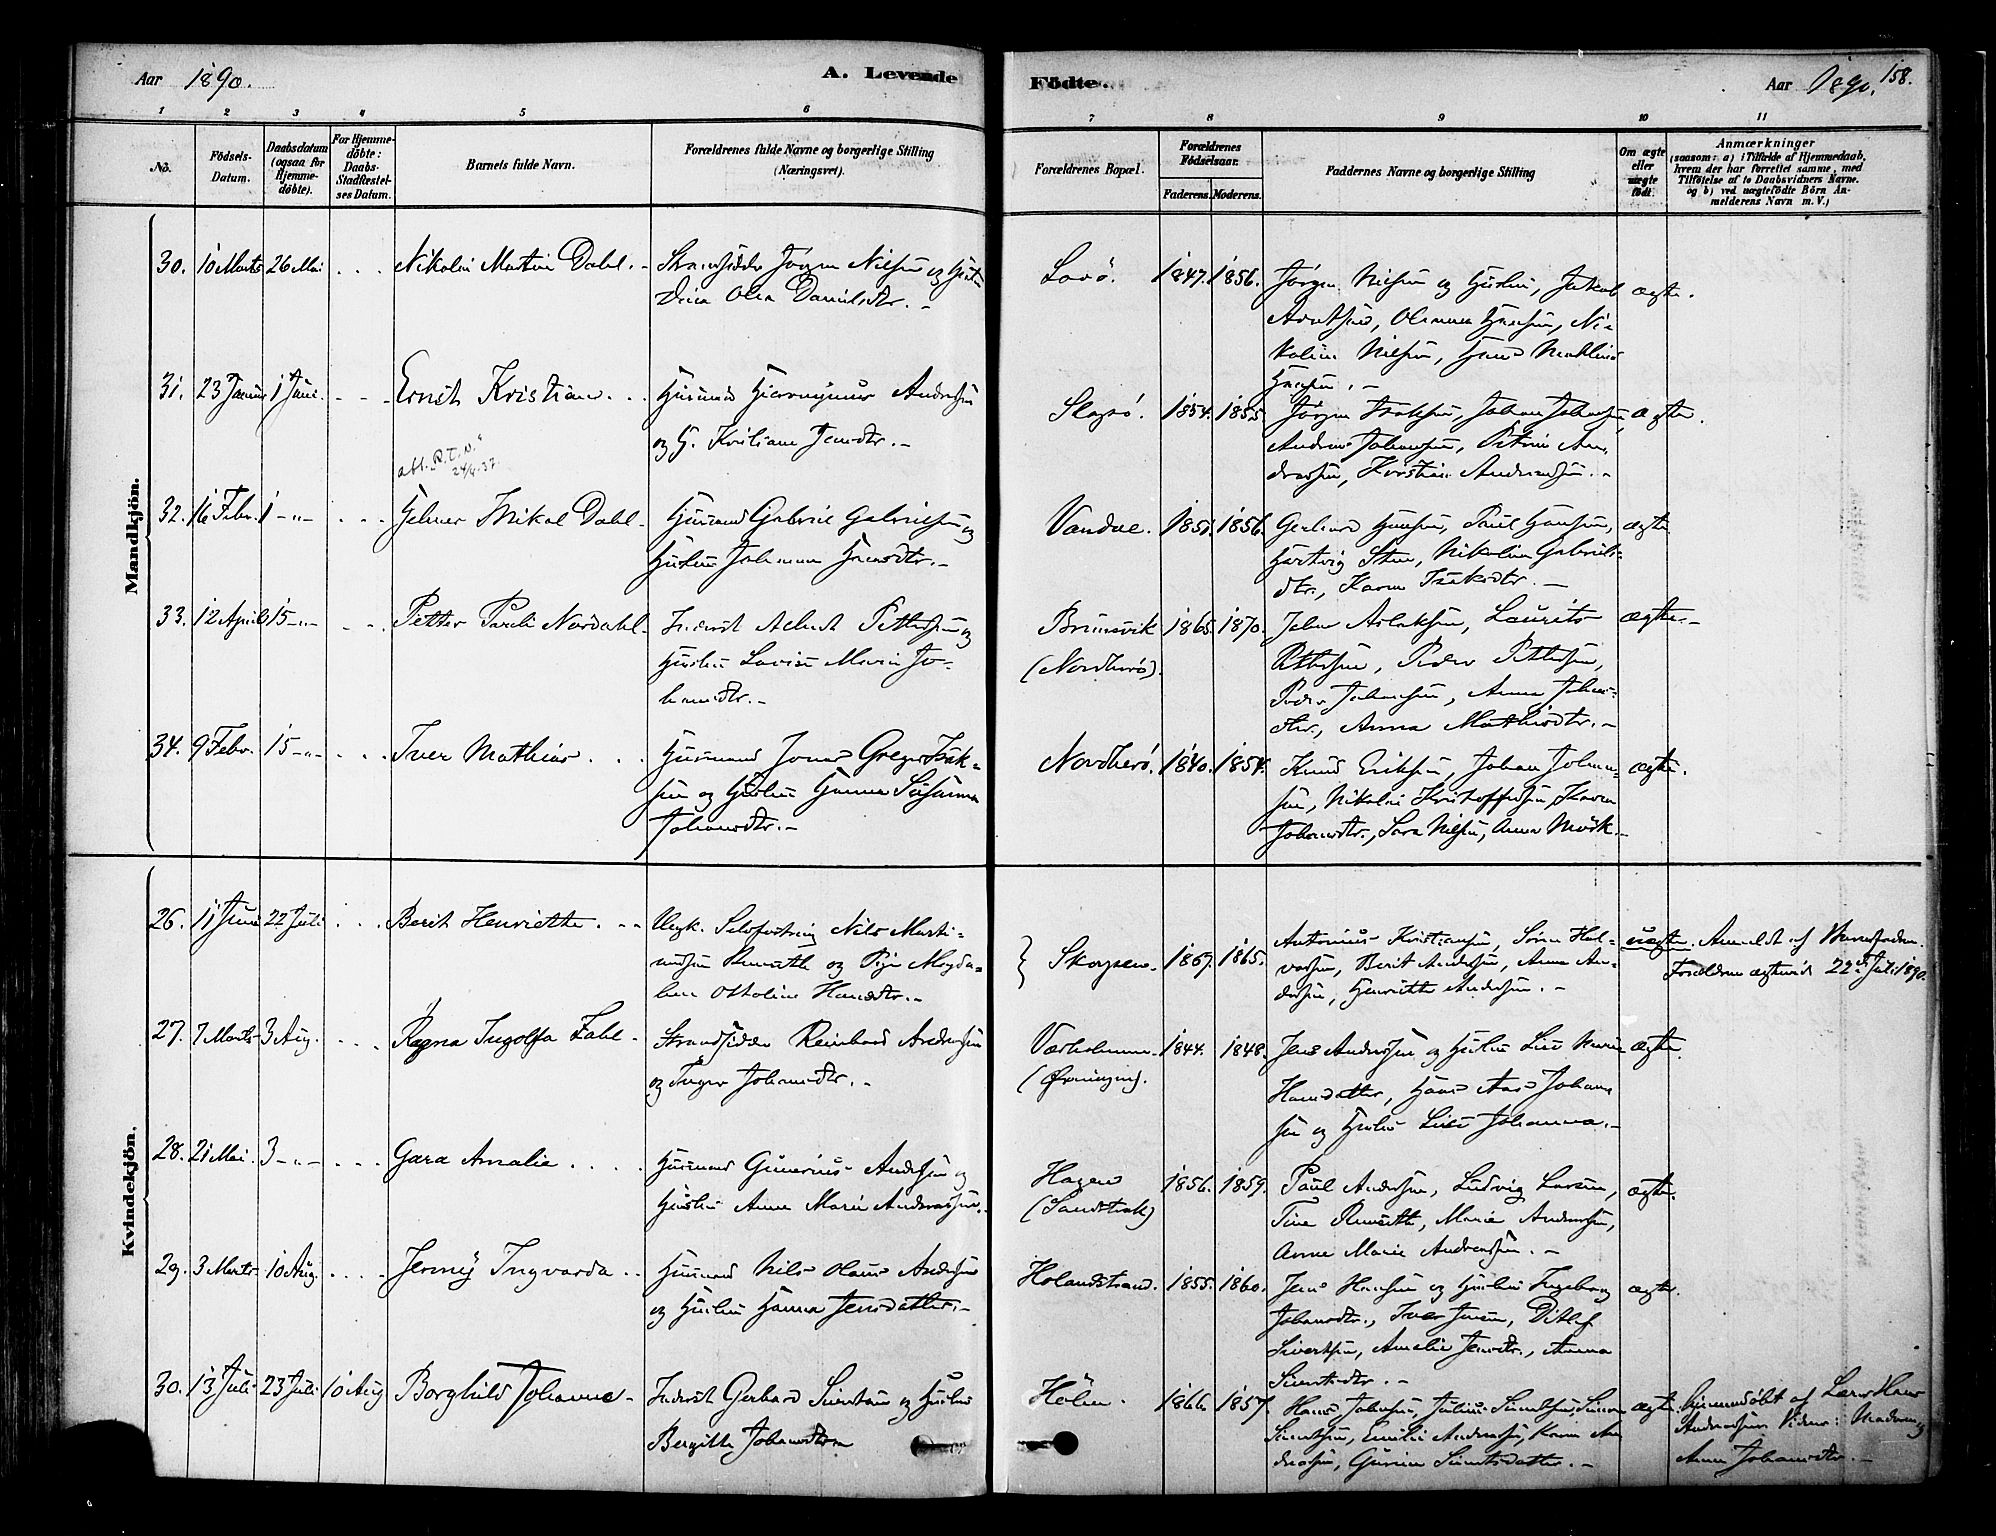 Aar 1890. A. Levende
Födte. Aar 1890. 158.
1 2 3 4 5 6
7 8 9 10 11
No. Födsels-Datum. Daabsdatum (ogsaa for Hjemmedöbte). For Hjemmedöbte: Daabs-Stadfæstelses Datum. Barnets fulde Navn. Forældrenes fulde Navne og borgerlige Stilling (Næringsvei).
Forældrenes Bopæl. Forældrenes Födselsaar. Faderens. Moderens. Faddernes Navne og borgerlige Stilling Om ægte eller uægte födt. Anmærkninger
(saasom: a) i Tilfælde af Hjemmedaab, hvem der har forrettet samme, med Tilföielse af to Daabsvidners Navne. og b) ved uægtefödte Börn Anmelderens Navn m. V.)
Mandkjön.
30. 10 Marts 26 Mai Nikolai Martin Dahl. Strandsidder Jörgen Nielsen og Hustru
Dina Olea Danielsdtr.
Lovö. 1847. 1856. Jörgen Nielsen og Hustru, Jakob ægte.
Nikoline Nilsen, Hans
Hansen.
31. 23 Januar 1 Juni. Ernst Kristian Husmand Hieronymus Andersen
og H. Kristiane Jensdtr.
Slapö. 1854. 1855. Jörgen Isaksen, Johan Johansen, ægte.
Andreas Johansen, Petrine Andreassen,
Kristine Andreassen.
abt. "R.T.N."
24/4.37.
32. 16 Febr. 1 -"- Helmer Mikal Dahl. Husmand Gabriel Gabrielsen og
Hustru Johanna Hansdtr.
Vandve. 1851. 1856. Gerhard Hansen, Paul Hansen, ægte.
Hartvig Steen, Nikoline Gabrielsdtr.,
Karen Isaksdtr.
33. 12 April 15 -"- Petter Pareli Nordahl. Inderst Albert Pettersen og
Hustru Lovise Marie Johansdtr.
Brunsvik (Nordherö). 1865. 1870. Johan Aslaksen, Laurits ægte.
Pettersen, Peder Pettersen,
Peder Johansen, Anna Johansdtr.,
Anna Mathisdtr.
34. 9 Febr. 15 -"- Iver Mathias Husmand Jonas Greger Isaksen
og Hustru Hanna Susanna
Johansdtr.
Nordherö. 1840. 1854. Knud Eriksen, Johan Johansen, ægte.
Nikolai Kristoffersen, Karen
Johansdtr., Sara Nilsen, Anna Mörk.
Kvindekjön.
26. 11 Juni 22 Juli Berit Henriette Ungk. Nils Martinusen
og Pige Magdalena
Ottoline Hansdtr.
Skogsen. 1867. 1865. Antonius Kristiansen, Sören Halvorsen, uægte. Anmeldt af Barnefaderen.
Berit Andersen, Anne Andersen, Forældrene ægteviet 22de Juli 1890.
Henriette Andersen.
27. 7 Marts 3 Aug. Ragna Ingolfa Fahl. Strandsidder Reinhard Andersen
og Inger Johansdtr.
Værholmen (Öxningen). 1844. 1848. Jens Andersen og Hustru Lise Marie ægte.
Hansdatter, Hans Aas Johansen
og Hustru Lise Johanna.
28. 21 Mai. 3 -"- Gæa Amalie Husmand Gunerius Andersen og
Hustru Anne Marie Andreassen.
Hagen (Sandstrak) 1856. 1859. Paul Andersen, Ludvig Larsen, ægte.
Tine, Marie Andersen,
Anne Marie Andreassen.
29. 3 Marts 10 Aug. Jenny Ingvarda Husmand Nils Olaus Andersen
og Hustru Hanna Jensdatter.
Holandstrand. 1855. 1860. Jens Hansen og Hustru Ingeborg ægte.
Johansdtr., Iver Jensen, Ditlef
Sivertsen, Amalie Jensdtr., Anna
Sivertsdtr.
30. 13 Juli 23 Juli 10 Aug Borghild Johanne Inderst Gerhard Sivertsen og Hustru
Bergitte Johansdtr
Holen. 1866. 1857. Hans Johansen, Julius Sivertsen, Simon ægte. Hjemmedöbt af Lærer Hans
Sivertsen, Emilie Andersen, Karen Andreassen, Andreassen Vidner:
Gurine Sivertsdatter. Anna Johansdtr.